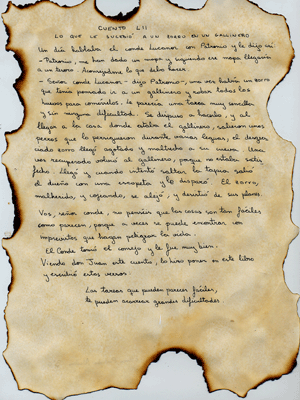 CUENTO LII
LO QUE LE SUCEDIÓ A UN ZORRO EN UN GALLINERO
Un día hablaba el conde Lucanor con Patronio y le dijo así:
- Patronio, me han dado un mapa y siguiendo ese mapa llegaría
a un tesoro. Aconséjame lo que debo hacer.
- Señor conde Lucanor - dijo Patronio -, una vez había un zorro
que tenía pensado ir a un gallinero y robar todos los
huevos para comérselos. Le parecía una tarea muy sencilla
y sin ninguna dificultad. Se dispuso a hacerlo, y al
llegar a la casa donde estaba el gallinero, salieron unos
perros que lo persiguieron durante varias leguas, el
zorro llegó agotado y maltrecho a su cueva. Una
vez recuperado volvió al gallinero, porque no estaba satis
fecho. Llegó y cuando intentó saltar la tapia, salió
el dueño con una escopeta y le disparó. El zorro,
malherido, y cojeando, se alejó, y desistió de sus planes.
Vos, señor conde, no penséis que las cosas son tan fáciles
como parecen, porque a veces se puede encontrar con
imprevistos que hagan peligrar la vida.
El Conde tomó el consejo y le fue muy bien.
Viendo don Juan este cuento, lo hizo poner en este libro
y escribió estos versos:
Las tareas que pueden parecer fáciles,
te pueden acarrear grandes dificultades.